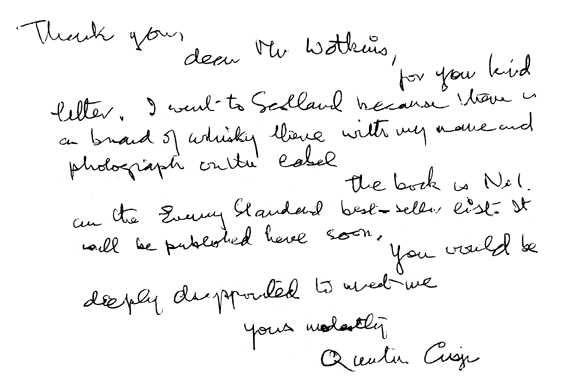 Thank you,
dear Mr Watkins,
for your kind
letter. I went to Scotland because there is
a brand of whisky there with my name and
photograph on the label
The book is No 1.
on the Evening Standard best-seller list. It
will be published here soon.
You would be
deeply disappointed to meet me
yours modestly
Quentin Crisp